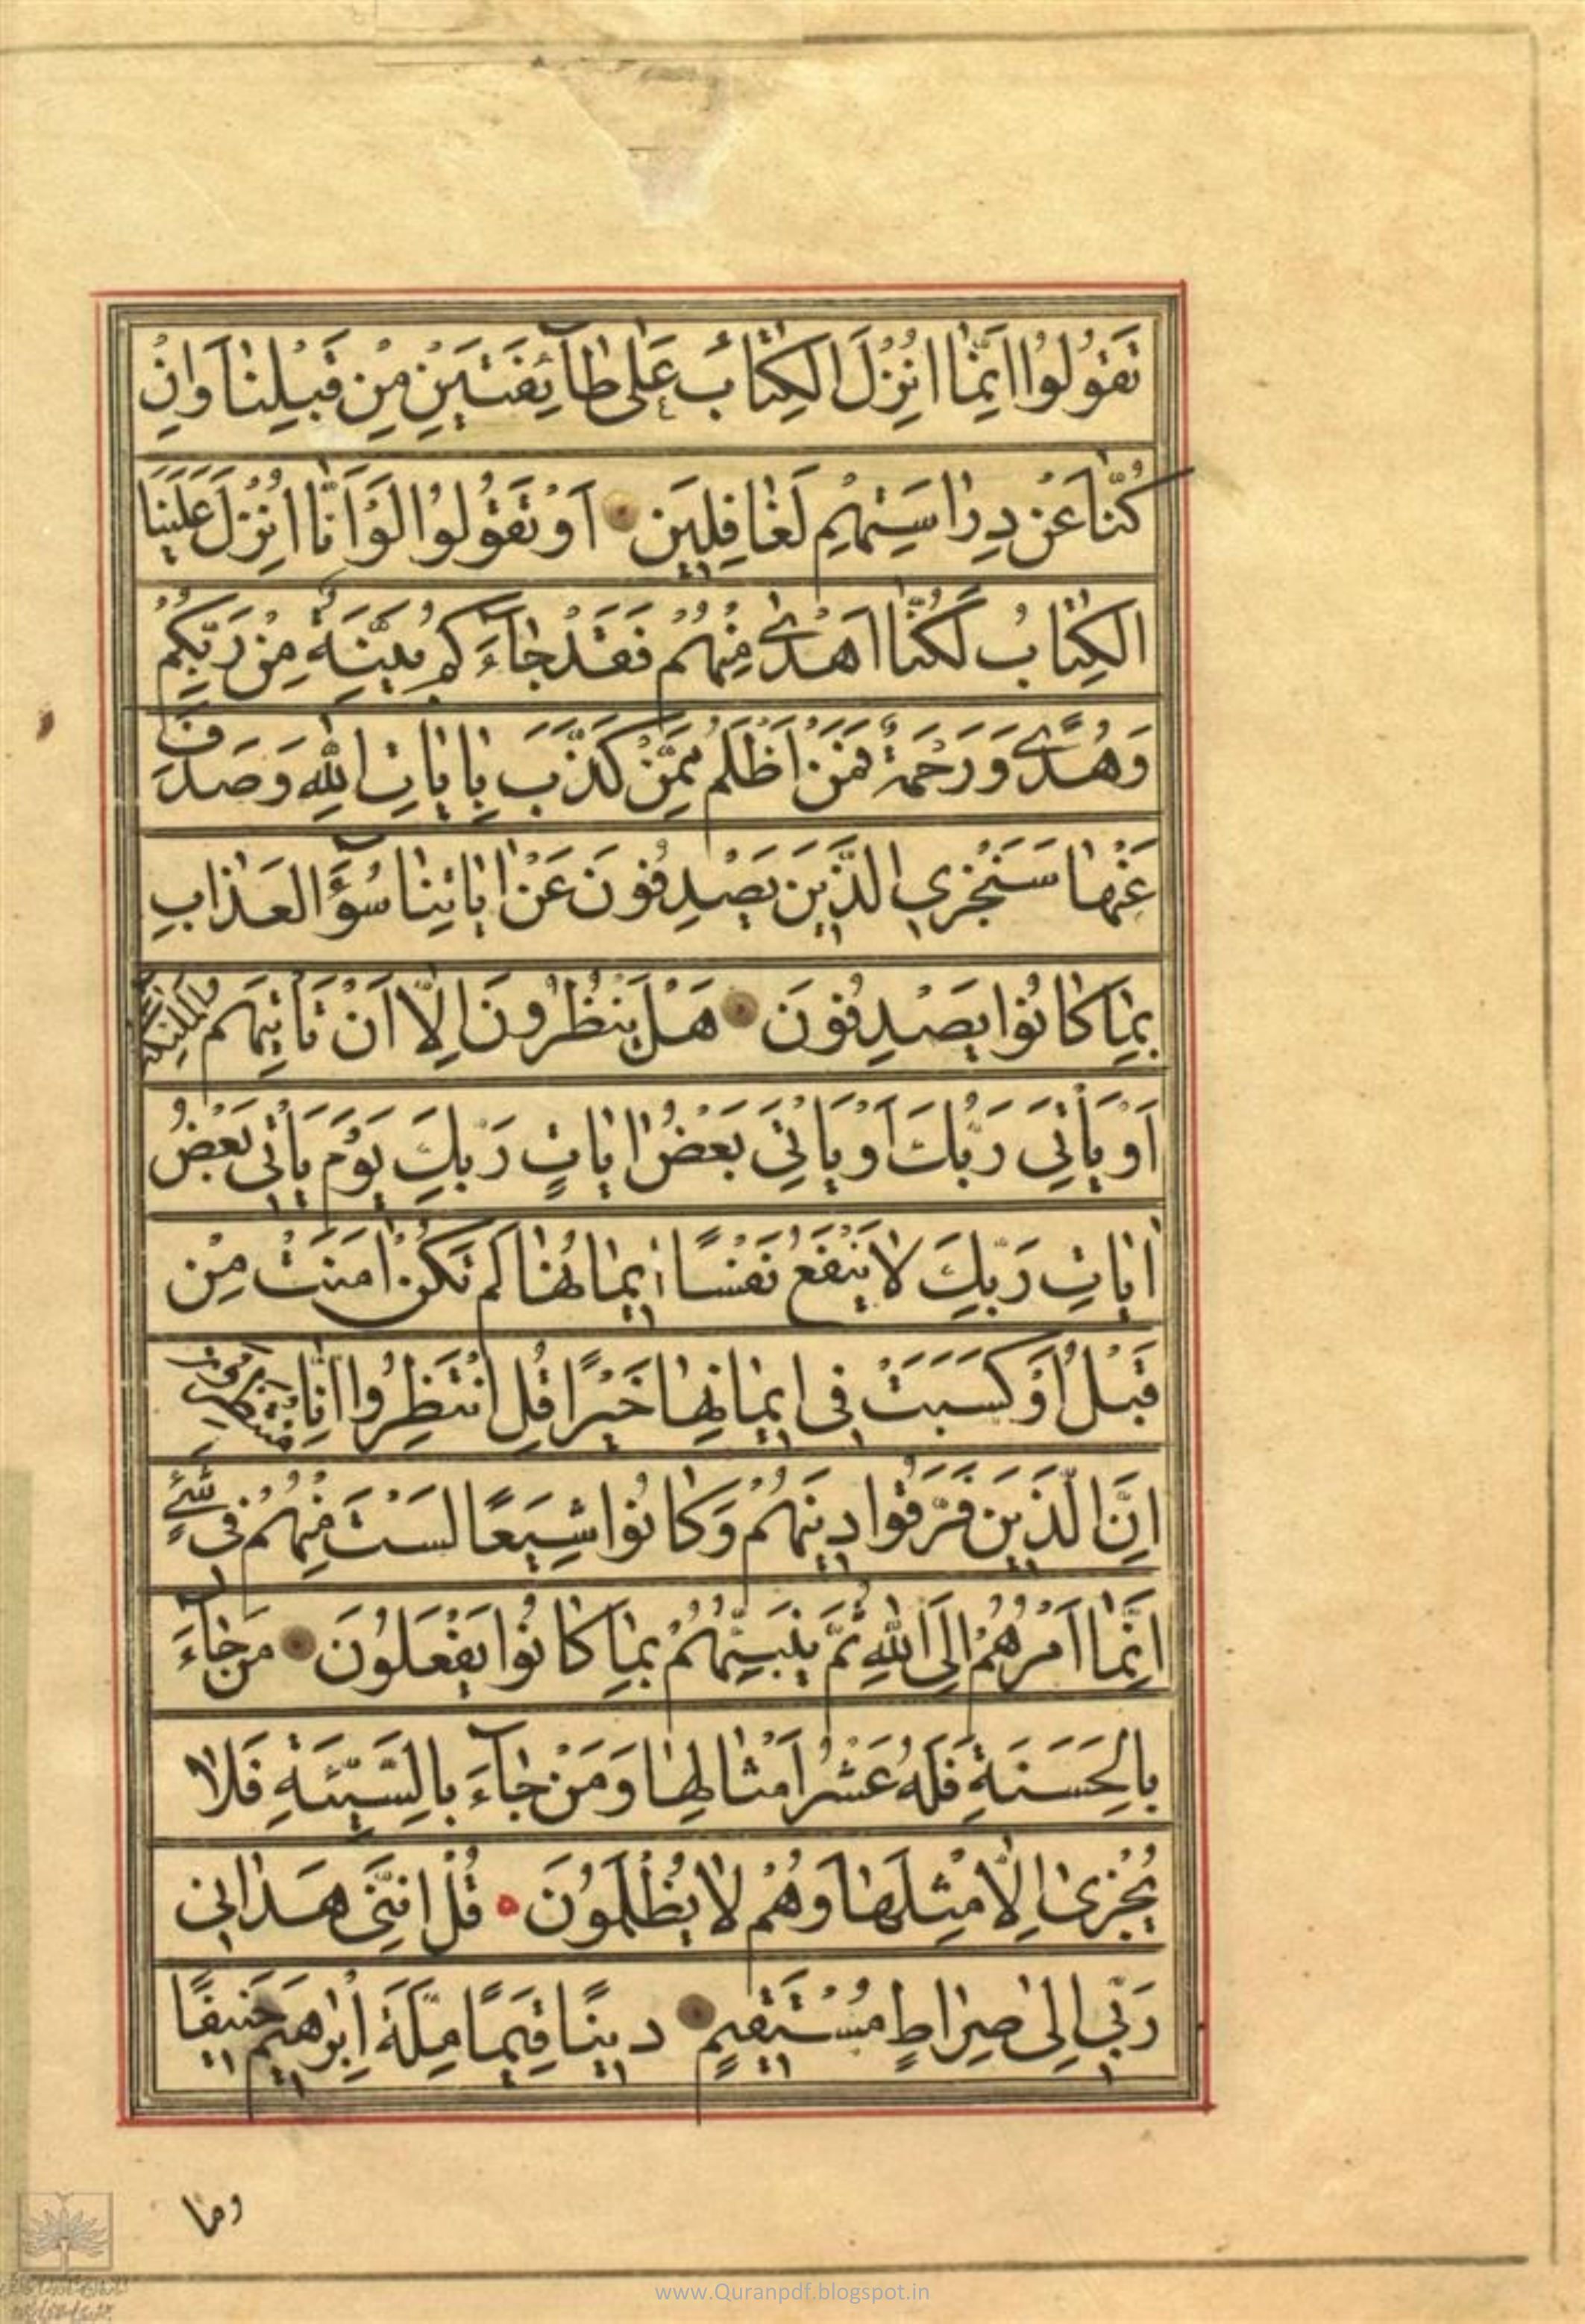 تَقُولُوا اِنَّمٰا اُنْزِلَ الْكِتٰابُ عَلىٰ طٰآئِفَتَيْنِ مِنْ قَبْلِنٰا وَاِنْ
كُنّٰا عَنْ دِرٰاسَتِهِمْ لَغٰافِلِينَ اَوْ تَقُولُوا لَوْ اَنّٰا اُنْزِلَ عَلَيْنَا
الْكِتٰابُ لَكُنّٰا اَهْدىٰ مِنْهُمْ فَقَدْ جٰآءَكُمْ بَيِّنَةٌ مِنْ رَبِّكُمْ
وَهُدًى وَرَحْمَةٌ فَمَنْ اَظْلَمُ مِمَّنْ كَذَّبَ بِاٰيٰاتِ اللّٰهِ وَصَدَفَ
عَنْهٰا سَنَجْزِي الَّذِينَ يَصْدِفُونَ عَنْ اٰيٰاتِنٰا سُوٓءَ الْعَذٰابِ
بِمٰا كٰانُوا يَصْدِفُونَ هَلْ يَنْظُرُونَ اِلّٰا اَنْ تَأْتِيَهُمُ الْمَلٰٓئِكَةُ
اَوْ يَأْتِيَ رَبُّكَ اَوْ يَأْتِيَ بَعْضُ اٰيٰاتِ رَبِّكَ يَوْمَ يَأْتِي بَعْضُ
اٰيٰاتِ رَبِّكَ لٰا يَنْفَعُ نَفْسًا اِيمٰانُهٰا لَمْ تَكُنْ اٰمَنَتْ مِنْ
قَبْلُ اَوْ كَسَبَتْ فِي اِيمٰانِهٰا خَيْرًا قُلِ انْتَظِرُوا اِنّٰا مُنْتَظِرُونَ
اِنَّ الَّذِينَ فَرَّقُوا دِينَهُمْ وَكٰانُوا شِيَعًا لَسْتَ مِنْهُمْ فِي شَيْءٍ
اِنَّمٰا اَمْرُهُمْ اِلَى اللّٰهِ ثُمَّ يُنَبِّئُهُمْ بِمٰا كٰانُوا يَفْعَلُونَ مَنْ جٰآءَ
بِالْحَسَنَةِ فَلَهُ عَشْرُ اَمْثٰالِهٰا وَمَنْ جٰآءَ بِالسَّيِّئَةِ فَلٰا
يُجْزىٰ اِلّٰا مِثْلَهٰا وَهُمْ لٰا يُظْلَمُونَ قُلْ اِنَّنِي هَدٰانِي
رَبِّي اِلىٰ صِرٰاطٍ مُسْتَقِيمٍ دِينًا قِيَمًا مِلَّةَ اِبْرٰهِيمَ حَنِيفًا
وما
www.Quranpdf.blogspot.in